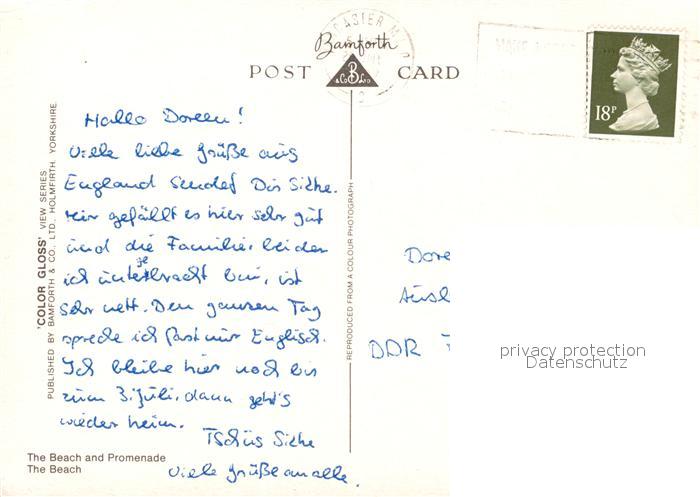 CASTER
Bamforth
POST CARD
& Co B Ltd
18P
Hallo Doreen!
Viele liebe Grüße aus
England sendet Dir Silke.
Mir gefällt es hier sehr gut
und die Familie, bei der
ich untergebracht bin, ist
sehr nett. Den ganzen Tag
spreche ich fast nur Englisch.
Ich bleibe hier noch bis
zum 3. Juli, dann geht's
wieder heim.
Tschüs Silke
Viele Grüße an alle.
Dore
Ausl
DDR
privacy protection
Datenschutz
'COLOR GLOSS' VIEW SERIES
PUBLISHED BY BAMFORTH & CO., LTD., HOLMFIRTH, YORKSHIRE.
REPRODUCED FROM A COLOUR PHOTOGRAPH
The Beach and Promenade
The Beach